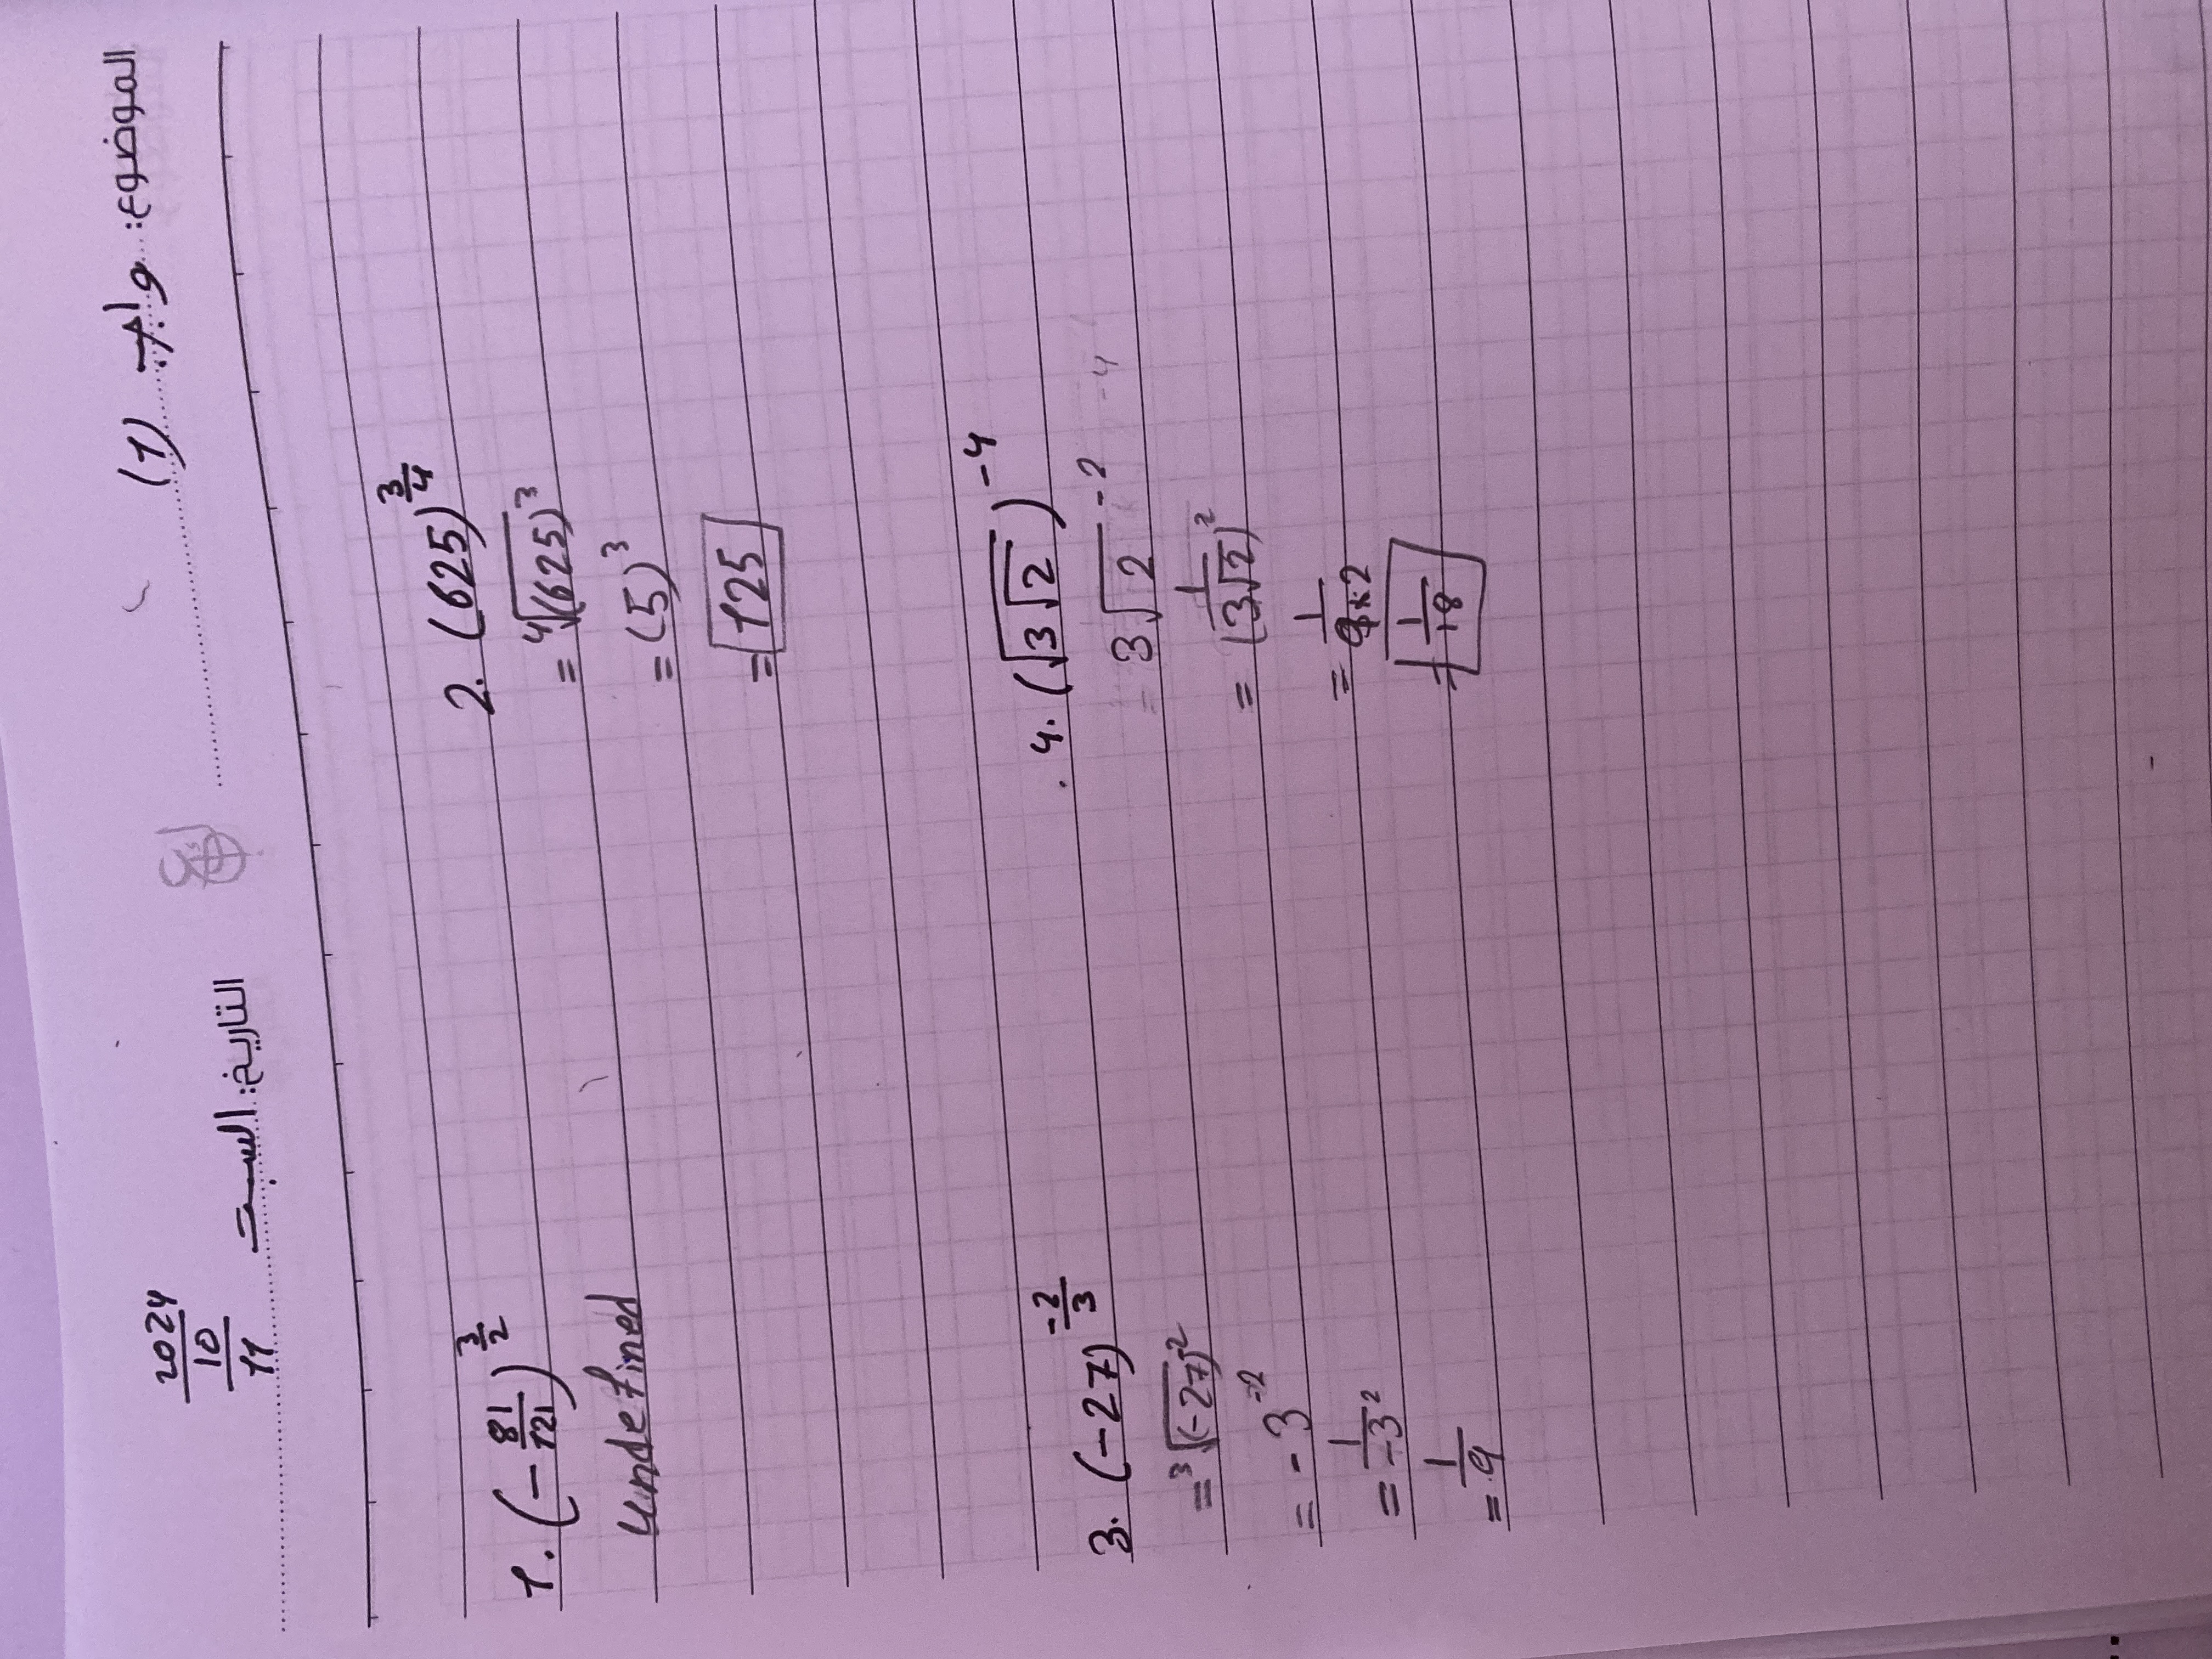 الموضوع: واجب (1)
التاريخ: السبت 11/10/2024
1. (-81/121)^(3/2)
undefined
2. (625)^(3/4)
= ⁴√(625)³
= (5)³
= 125
3. (-27)^(-2/3)
= ³√(-27)⁻²
= -3⁻²
= 1/-3²
= 1/9
4. (√3√2)⁻⁴
= 3√2⁻²
= 1/(3√2)²
= 1/9×2
= 1/18